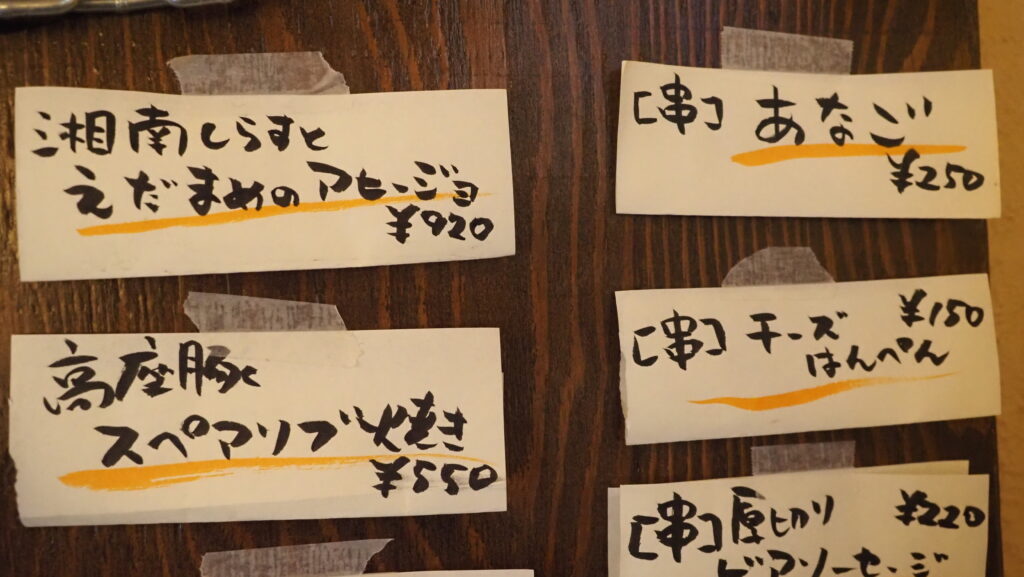 湘南しらすと
えだまめのアヒージョ
¥920
高座豚
スペアリブ焼き
¥550
[串] あなご
¥250
[串] チーズ ¥150
はんぺん
[串] 厚切り ¥220
ビアソーセージ